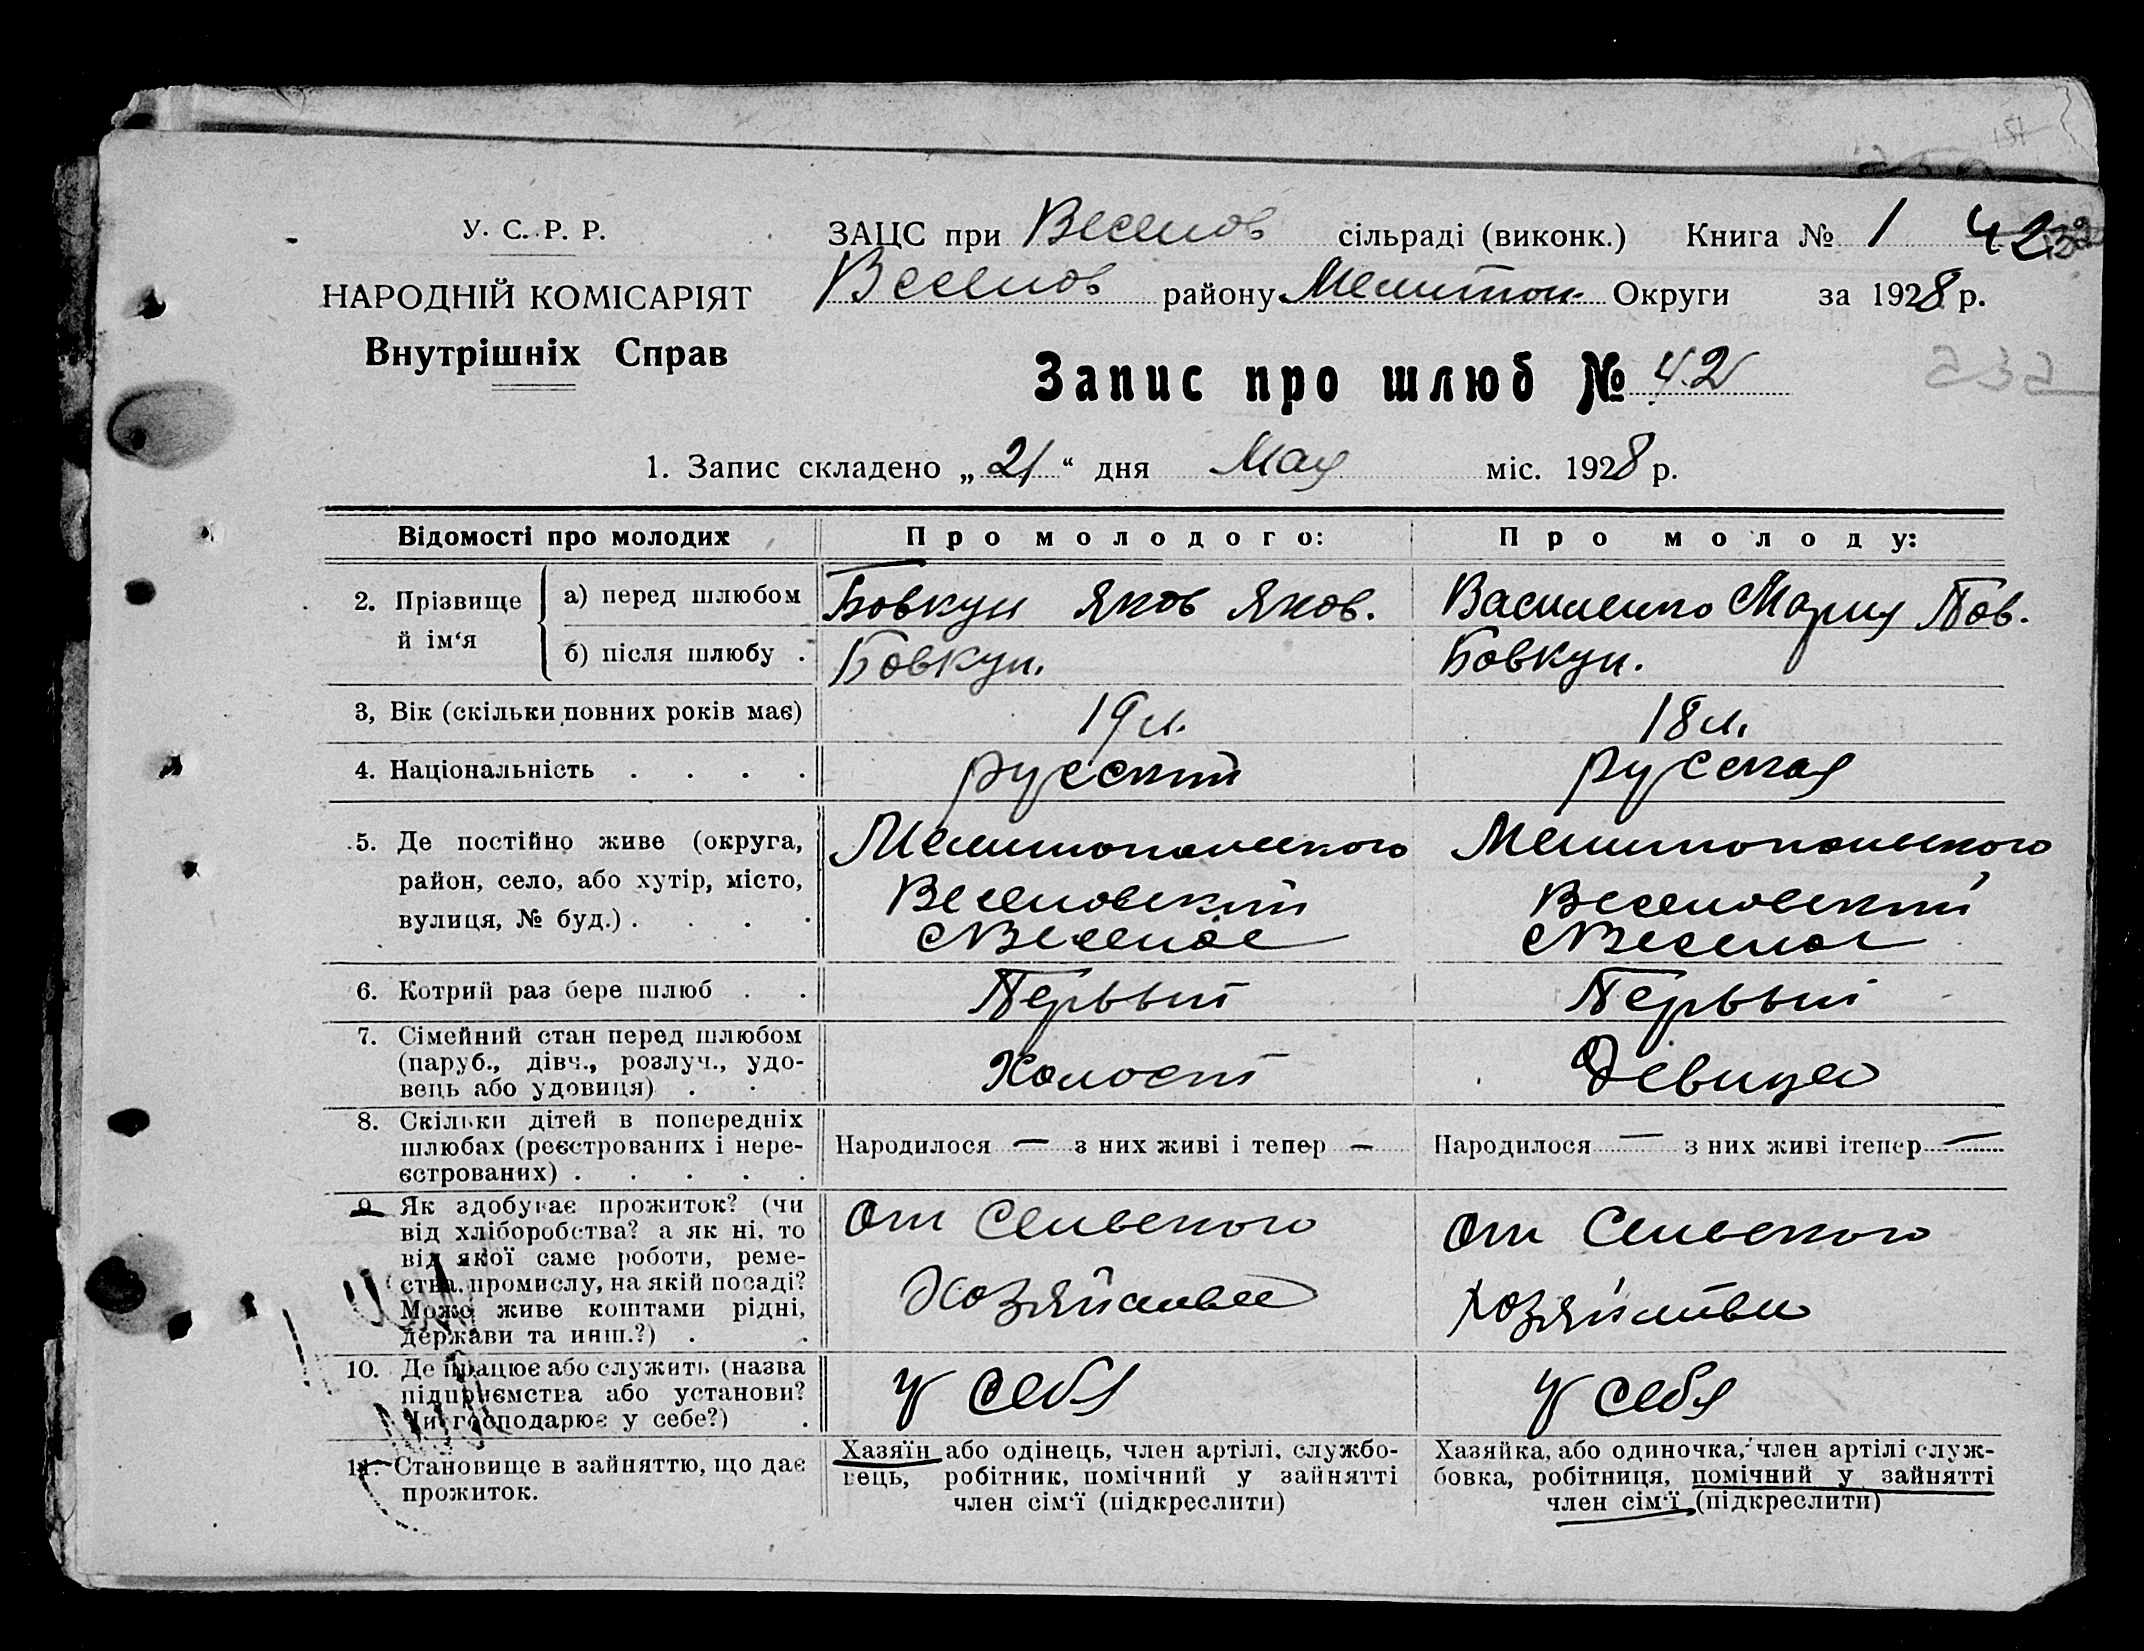 У. С. Р. Р.
НАРОДНІЙ КОМІСАРІЯТ
Внутрішніх Справ
ЗАЦС при Веселов сільраді (виконк.) Книга № 1 42
Веселов району Мелитоп. Округи за 1928 р.
Запис про шлюб № 42
232
1. Запис складено „21“ дня Мая міс. 1928 р.
Відомості про молодих Про молодого: Про молоду:
2. Прізвище й ім‘я
а) перед шлюбом Бовкун Яков Яков. Василенко Мария Пав.
б) після шлюбу . Бовкун. Бовкун.
3, Вік (скільки повних років має) 19 л. 18 л.
4. Національність . . . . русский русская
5. Де постійно живе (округа, Мелитопольского Мелитопольского
район, село, або хутір, місто, Веселовский Веселовский
вулиця, № буд.) . . . . с Веселое с Веселое
6. Котрий раз бере шлюб . . Первый Первый
7. Сімейний стан перед шлюбом
(паруб., дівч., розлуч., удо-
вець або удовиця) . . . Холост Девица
8. Скільки дітей в попередніх
шлюбах (реєстрованих і нере- Народилося — з них живі і тепер — Народилося — з них живі ітепер —
єстрованих) . . . . .
9. Як здобуває прожиток? (чи От Сельского От Сельского
від хліборобства? а як ні, то
від якої саме роботи, реме-
ства, промислу, на якій посаді? Хозяйства Хозяйства
Може живе коштами рідні,
держави та инш.?) . .
10. Де працює або служить (назва
підприємства або установи? У себя У себя
Чи господарює у себе?) .
11. Становище в зайняттю, що дає
прожиток.
Хазяїн або одінець, член артілі, службо-
вець, робітник, помічний у зайнятті
член сім‘ї (підкреслити)
Хазяйка, або одиночка, член артілі служ-
бовка, робітниця, помічний у зайнятті
член сім‘ї (підкреслити)